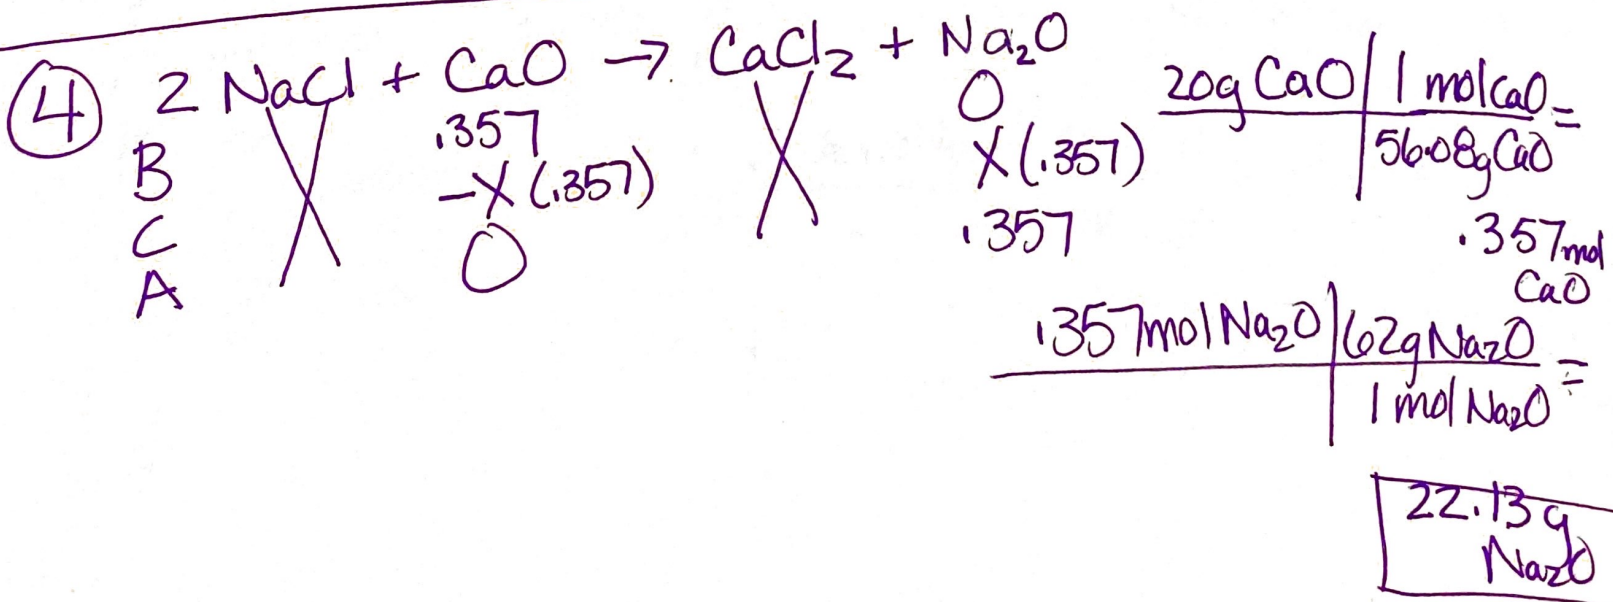 4 2 NaCl + CaO → CaCl₂ + Na₂O
B .357 0
C -X (.357) X (.357)
A 0 .357
20g CaO | 1 mol CaO =
56.08g CaO
.357 mol
CaO
.357 mol Na₂O | 62g Na₂O =
1 mol Na₂O
22.13 g
Na₂O